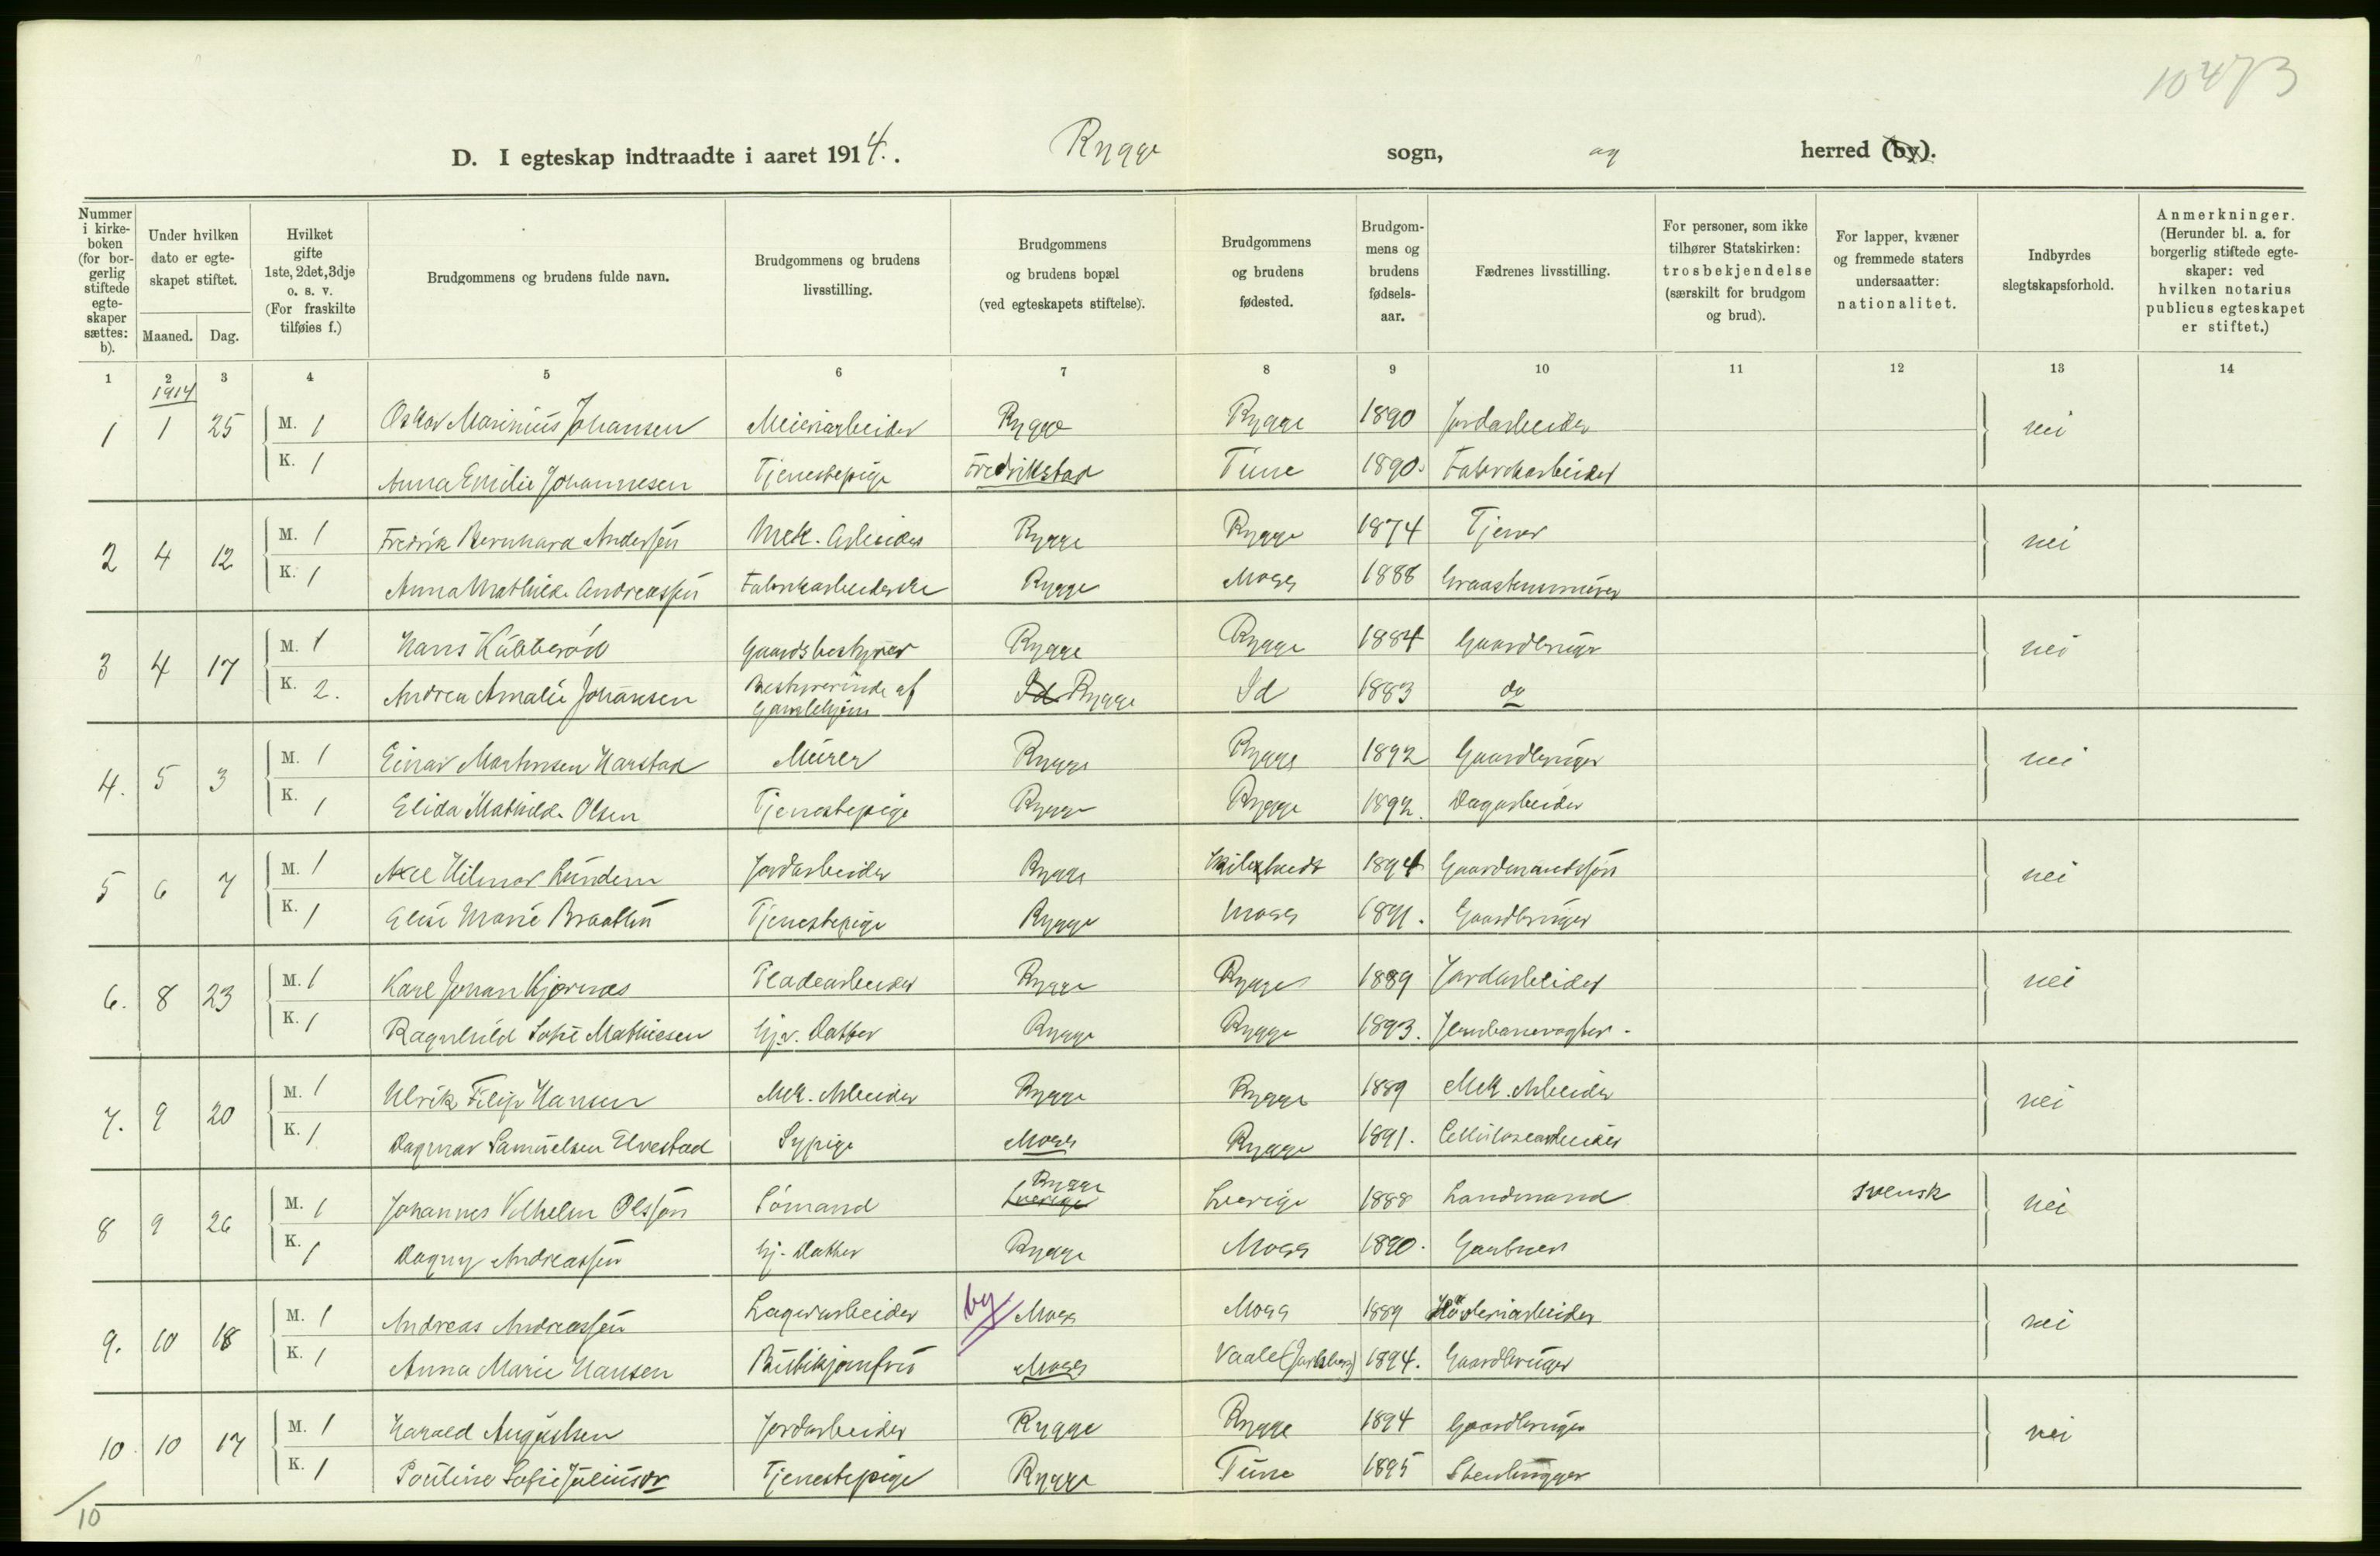 10473
D. I egteskap indtraadte i aaret 1914. Rygge sogn, og herred (by).
Nummer i kirkeboken (for borgerlig stiftede egteskaper sættes: b).
Under hvilken dato er egteskapet stiftet.
Maaned. Dag.
Hvilket gifte 1ste, 2det, 3dje o. s. v. (For fraskilte tilføies f.)
Brudgommens og brudens fulde navn.
Brudgommens og brudens livsstilling.
Brudgommens og brudens bopæl (ved egteskapets stiftelse).
Brudgommens og brudens fødested.
Brudgommens og brudens fødselsaar.
Fædrenes livsstilling.
For personer, som ikke tilhører Statskirken: trosbekjendelse (særskilt for brudgom og brud).
For lapper, kvæner og fremmede staters undersaatter: nationalitet.
Indbyrdes slegtskapsforhold.
Anmerkninger. (Herunder bl. a. for borgerlig stiftede egteskaper: ved hvilken notarius publicus egteskapet er stiftet.)
1 2 3 4 5 6 7 8 9 10 11 12 13 14
1914
1 1 25 M. 1 Oskar Marinius Johansen Meieriarbeider Rygge Rygge 1890 Jordarbeider nei
K. 1 Anna Emilie Johannesen Tjenestepige Fredrikstad Tune 1890. Fabrikarbeider
2 4 12 M. 1 Fredrik Bernhard Anderssen Mek. Arbeider Rygge Rygge 1874 Tjener nei
K. 1 Anna Mathilde Andreassen Fabrikarbeiderske Rygge Moss 1888 Graastensmurer
3 4 17 M. 1 Hans Kubberød Gaardsbestyrer Rygge Rygge 1884 Gaardbruger nei
K. 2. Andrea Amalie Johansen Bestyrerinde af Gamlehjem Id Rygge Id 1883 do
4. 5 3 M. 1 Einar Martinsen Harstad Murer Rygge Rygge 1892 Gaardbruger nei
K. 1 Elida Mathilde Olsen Tjenestepige Rygge Rygge 1892. Dagarbeider
5 6 7 M. 1 Axel Hilmar Lundem Jordarbeider Rygge 1894 Gaardmandssøn nei
K. 1 Elise Marie Braathen Tjenestepige Rygge Moss 1891. Gaardbruger
6. 8 23 M. 1 Karl Johan Kjærnæs Pladearbeider Rygge Rygge 1889 Jordarbeider nei
K. 1 Ragnhild Sofie Mathiesen Hjv. Datter Rygge Rygge 1893. Jernbanevogter.
7. 9 20 M. 1 Ulrik Filip Hansen Mek. Arbeider Rygge Rygge 1889 Mek. Arbeider nei
K. 1 Dagmar Samuelsen Elvestad Sypige Moss Rygge 1891. Cellulosearbeider
8 9 26 M. 1 Johannes Vilhelm Olsson Sømand Sverige Rygge Sverige 1888 Landmand svensk nei
K. 1 Dagny Andreassen Hj. Datter Rygge Moss 1890. Gartner
9. 10 18 M. 1 Andreas Andreassen Lagerarbeider by Moss Moss 1889 Høvleriarbeider nei
K. 1 Anna Marie Hansen Butikjomfru Moss Vaale (Jarlsberg) 1894. Gaardbruger
10. 10 17 M. 1 Harald Augustsen Jordarbeider Rygge Rygge 1894 Gaardbruger nei
K. 1 Pauline Sofie Juliusdr Tjenestepige Rygge Tune 1895 Stenhugger
10